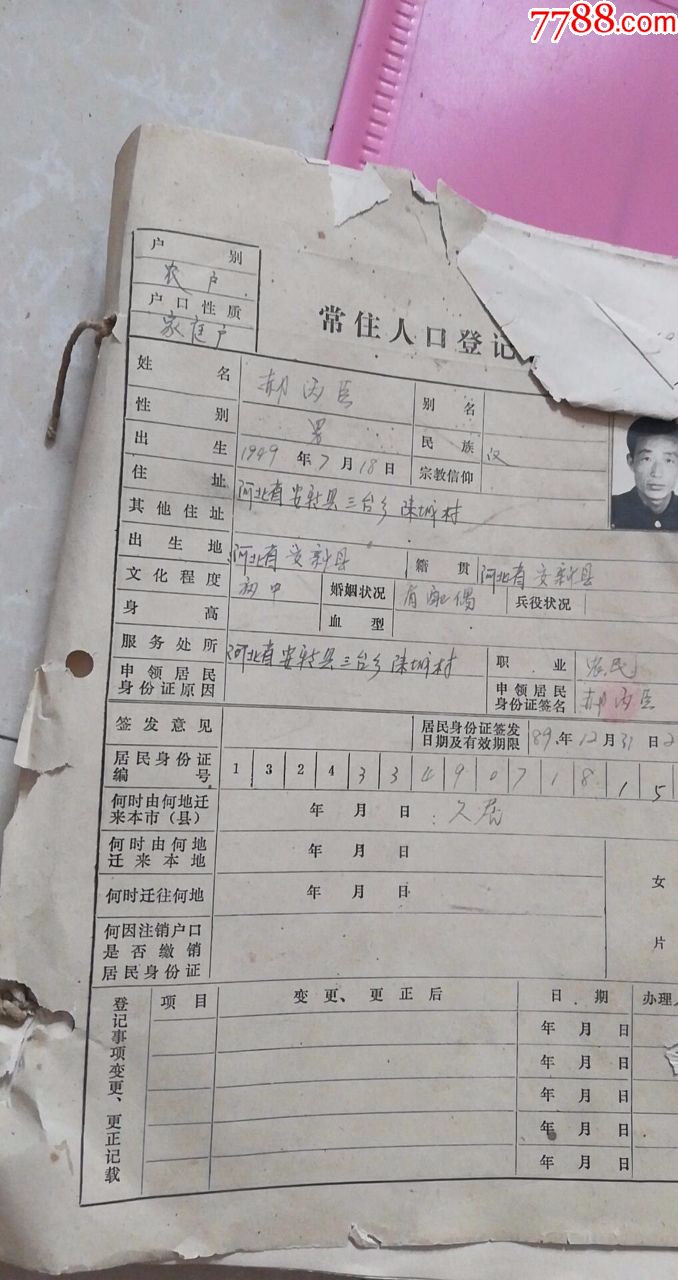 7788.com
户 别
农户
户口性质
家庭户
常住人口登记
姓 名 郝丙臣 别 名
性 别 男 民 族 汉
出 生 1949 年 7 月 18 日 宗教信仰
住 址 河北省安新县三台乡 村
其他住址
出生地 河北省安新县 籍 贯 河北省安新县
文化程度 初中 婚姻状况 有配偶 兵役状况
身 高 血 型
服务处所 河北省安新县三台乡 村 职 业 农民
申领居民身份证原因 申领居民身份证签名 郝丙臣
签发意见 居民身份证签发日期及有效期限 89 年 12 月 31 日 2
居民身份证编号 1 3 2 4 3 3 4 9 0 7 1 8 1 5
何时由何地迁来本市（县） 年 月 日 久居
何时由何地迁来本地 年 月 日
何时迁往何地 年 月 日
女
片
何因注销户口是否缴销居民身份证
登记事项变更、更正记载
项 目 变更、更正后 日 期 办理
年 月 日
年 月 日
年 月 日
年 月 日
年 月 日